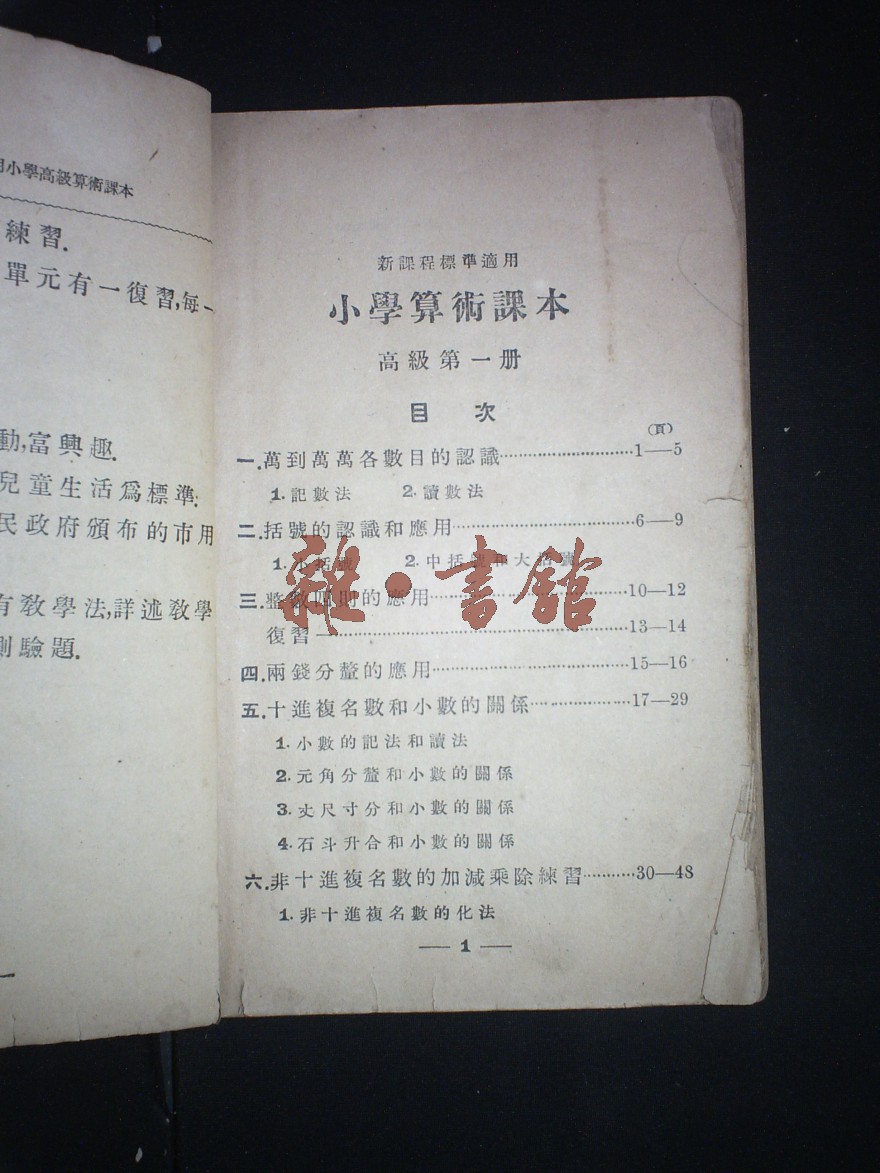 用小學高級算術課本
練習.
單元有一復習,每一
動,富興趣.
兒童生活爲標準;
民政府頒布的市用
有教學法,詳述教學
測驗題.
新課程標準適用
小學算術課本
高級第一册
目 次
(頁)
一.萬到萬萬各數目的認識……1—5
1.記數法 2.讀數法
二.括號的認識和應用……6—9
1.小括號 2.中括號和大括號
三.整數四則的應用……10—12
復習一……13—14
四.兩錢分釐的應用……15—16
五.十進複名數和小數的關係……17—29
1.小數的記法和讀法
2.元角分釐和小數的關係
3.丈尺寸分和小數的關係
4.石斗升合和小數的關係
六.非十進複名數的加減乘除練習……30—48
1.非十進複名數的化法
— 1 —
雜·書館